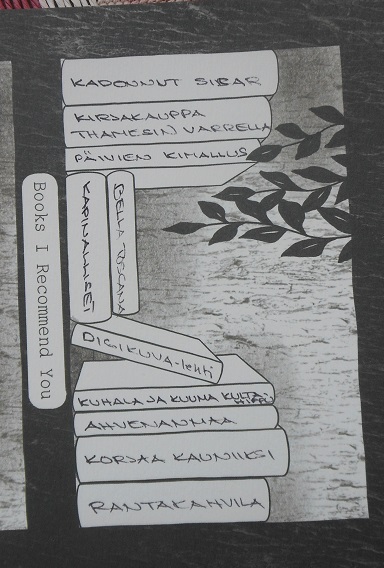 KADONNUT SISAR
KIRJAKAUPPA
THAMESIN VARRELLA
PÄIVIEN KIMALLUS
KAPINALLISET
BELLA TOSCANA
DIGIKUVA-lehti
KUHALA JA KUUMA KULTA-
HIPPU
AHVENANMAA
KORJAA KAUNIIKSI
RANTAKAHVILA
Books I Recommend You